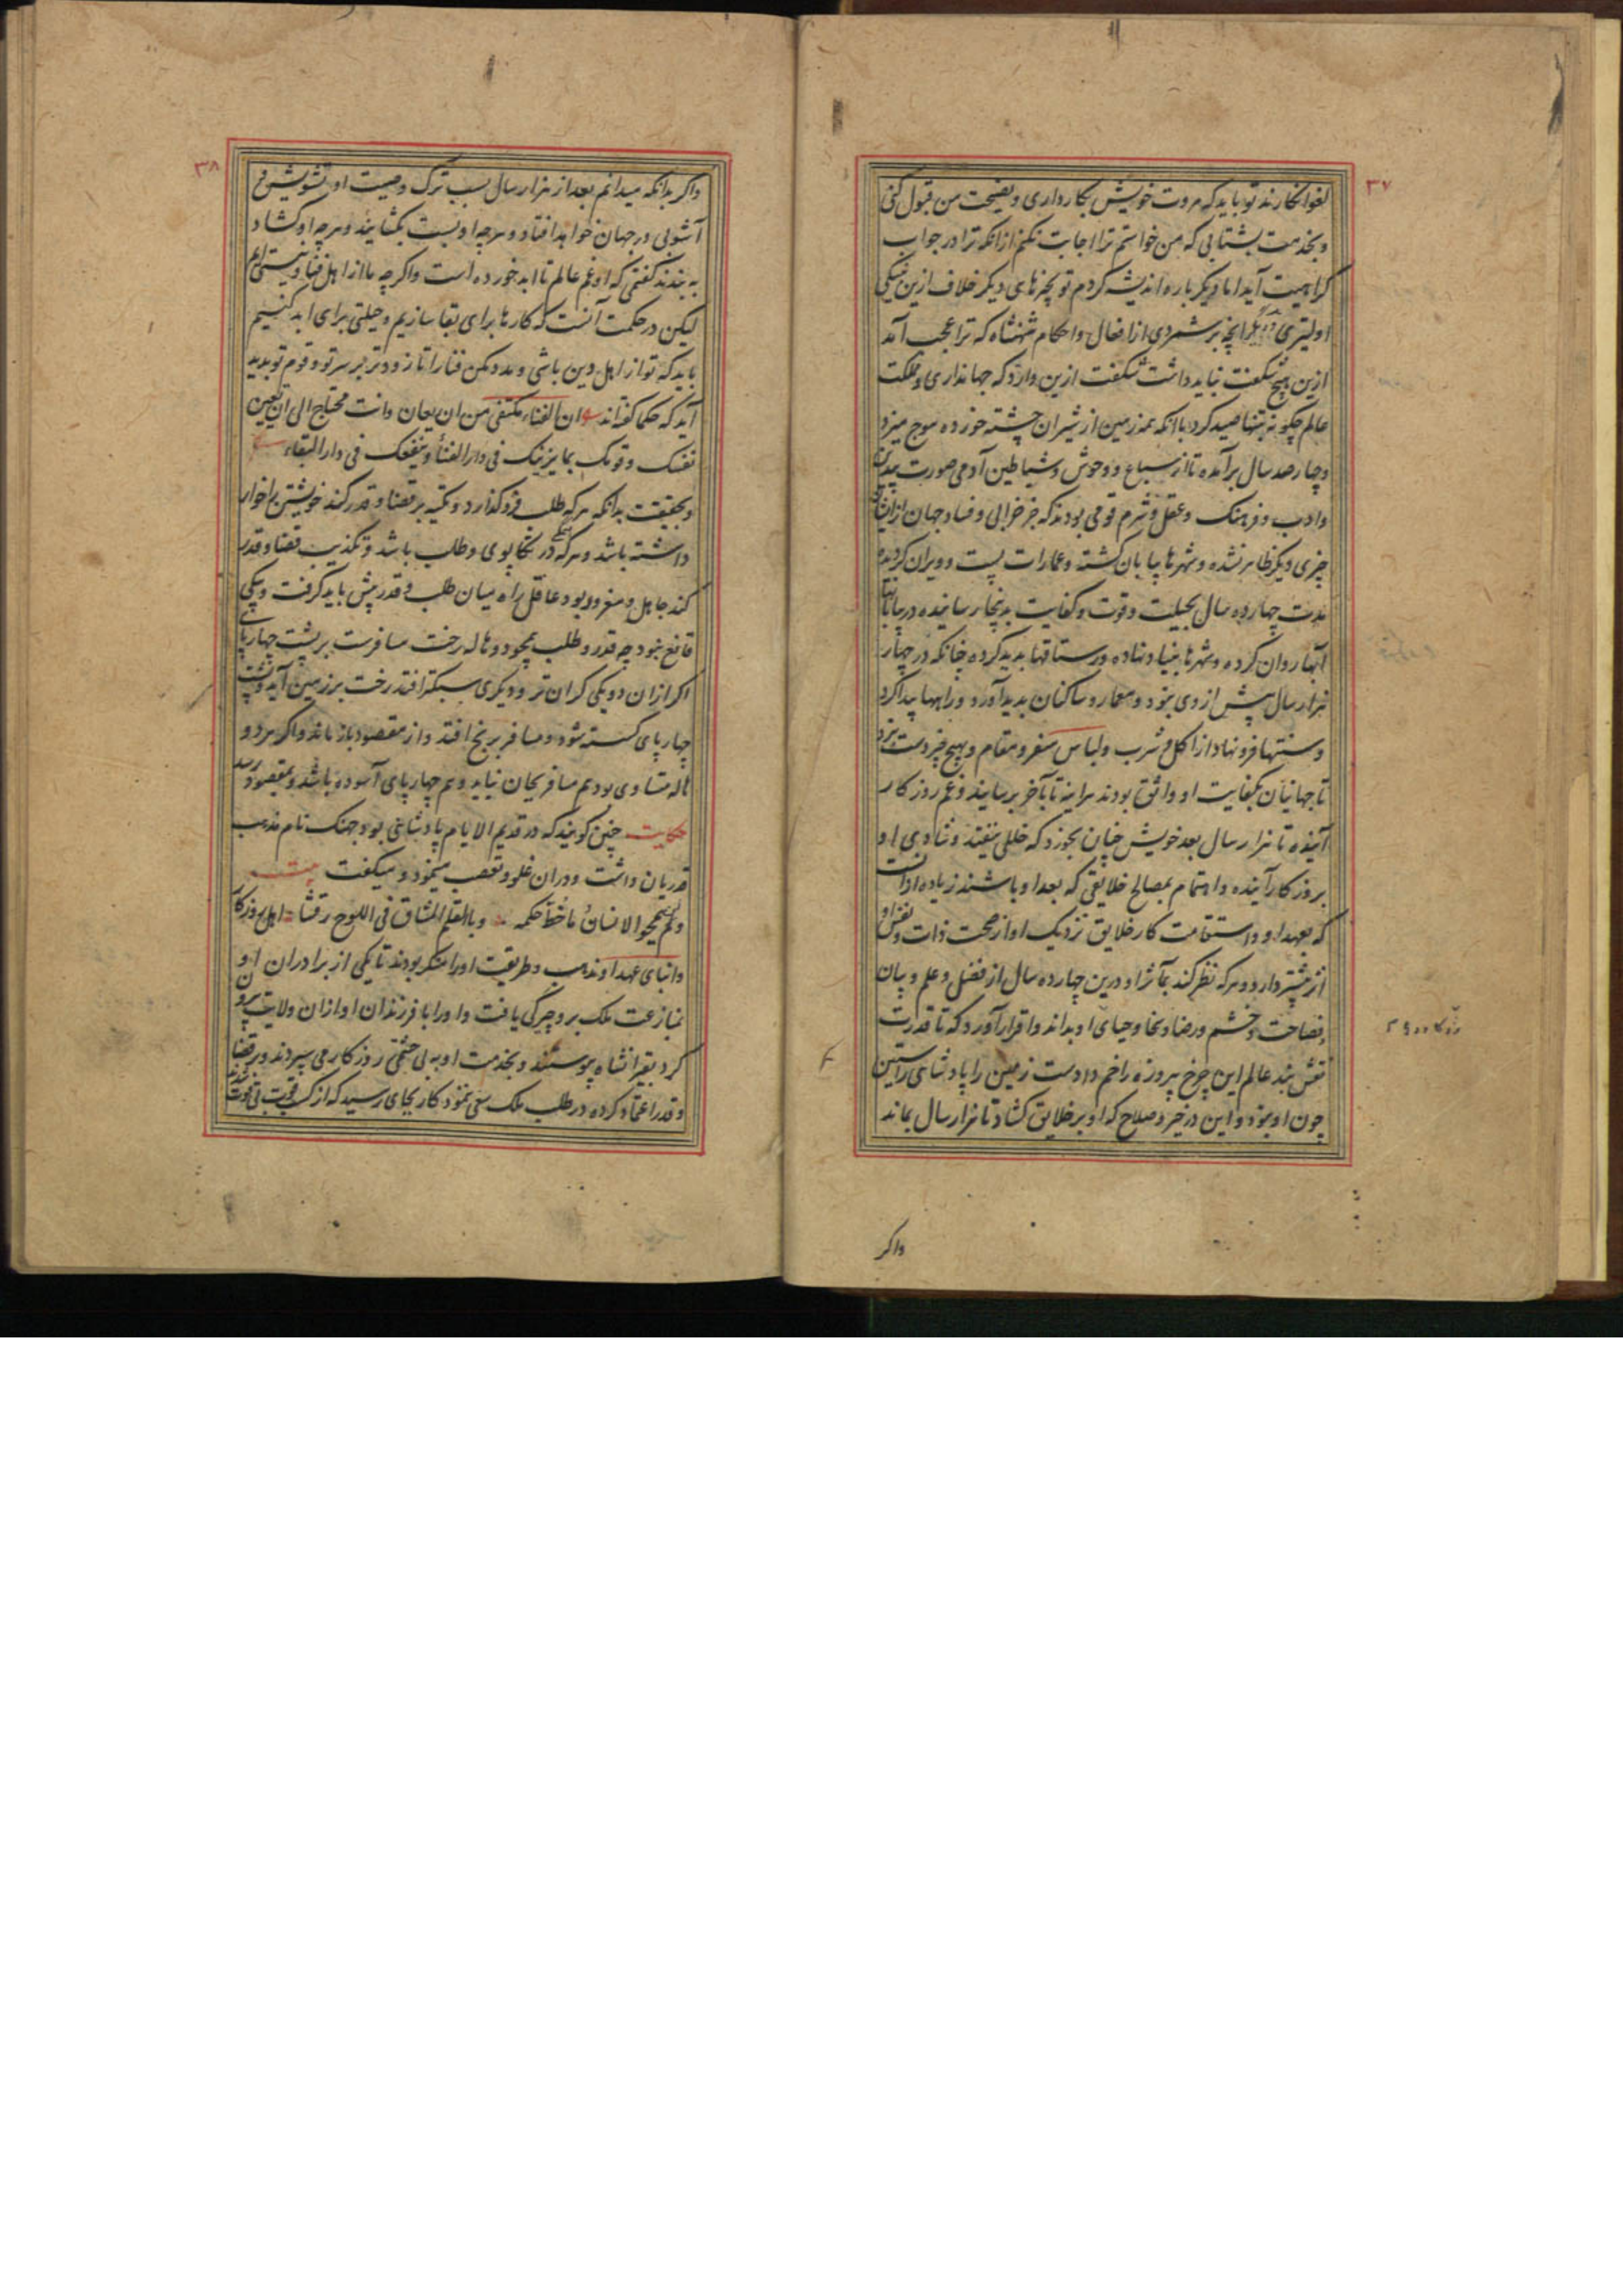 ۳۷
لغو انکارند تو باید که مروت خویش بکار داری و نصیحت من قبول کنی
و بخدمت بشتابی که من خواستم ترا اجابت نکنم از انکه ترا در جواب
کراهیت آید اما دیکر باره اندیشه کردم تو بچیزهای دیکر خلاف ازین نیکی
اولیتری دیکر انچه برشمردی از افعال و احکام شهنشاه که ترا عجب آمد
ازین هیچ شکفت نباید داشت شکفت ازین دارد که جهانداری و مملکت
عالم چکونه بتنها صید کرد با انکه همه زمین از شیران چشته خورده موج میزد
و چهارصد سال برآمده تا از سباع و وحوش و شیاطین آدمی صورت بیدین
و ادب و فرهنک و عقل و شرم قومی بودند که جز خرابی و فساد جهان از ایشان
چیزی دیکر ظاهر نشده و شهرها بیابان کشته و عمارات پست و ویران کردیده
مدت چهارده سال بحیلت و قوت و کفایت بدینجا رسانیده در بیابانها
آبها روان کرده و شهرها بنیاد نهاده و رستاقها بدید کرده چنانکه در چهار
هزار سال پیش از وی نبود و معمار و ساکنان بدید آورد و راهها پیدا کرد
و سنتها فرو نهاد از اکل و شرب و لباس سفر و مقام و بهیچ چیز دست نبرد
تا جهانیان بکفایت او واثق بودند هراینه تا بآخر برسانید و غم روزکار
آینده تا هزار سال بعد خویش چنان بخورد که خللی نیفتد و شادی او
بروزکار آینده و اهتمام بمصالح خلایقی که بعد او باشند زیاده از انست
که بعهد او و استقامت کار خلایق نزدیک او از صحت ذات و نفس او
اثر بیشتر دارد و هرکه نظر کند بمآثر او درین چهارده سال از فضل و علم و بیان
و فصاحت و خشم و رضا و سخا و حیای او بداند و اقرار آورد که تا قدرت
نقش بند عالم این چرخ پیروزه را خم داد است زمین را پادشاهی راستین
چون او نبود و این در خیر و صلاح که او بر خلایق کشاد تا هزار سال بماند
واکر
۳۸
واکر بدانکه میدانم بعد از هزار سال بسبب ترک وصیت او تشویش و
آشوبی در جهان خواهد افتاد و هرچه او بست بکشایند و هرچه او کشاد
به بندند کفتمی که او غم عالم تا ابد خورده است واکر چه ما از اهل فنا و نیستی ایم
لیکن در حکمت آنست که کارها برای بقا سازیم و حیلتی برای ابد کنیم
باید که تو از اهل دین باشی و مدد مکن فنا را تا زودتر بر سر تو و قوم تو بدید
آید که حکما کفته‌اند ان الفناء مکتفی من ان یعان و انت محتاج الی ان تعین
نفسک و قومک بما یزینک فی دار الفناء و ینفعک فی دار البقاء
و بحقیقت بدانکه هرکه طلب فرو کذارد و تکیه بر قضا و قدر کند خویشتن را خوار
داشته باشد و هرکه همکی در تکاپوی و طلب باشد و تکذیب قضا و قدر
کند جاهل و مغرور بود عاقل را میان طلب و قدر پیش باید کرفت و بیکی
قانع نبود چه قدر و طلب همچو دو هاله رخت مسافرست بر پشت چهارپای
اکر از ان دو یکی کران تر و دیکری سبکتر افتد رخت بر زمین آید و پشت
چهارپای کسسته شود و مسافر برنج افتد و از مقصود باز ماند واکر هر دو
هاله متساوی بود هم مسافر بجان نیاید و هم چهارپای آسوده باشد و بمقصود رسد
حکایت چنین کویند که در قدیم الایام پادشاهی بود جهنک نام مذهب
قدریان داشت و دران غلو و تعصب مینمود و میکفت بیت
ولم یمح الانسان ما خط حکمه و بالقلم المشاق فی اللوح رقشا اهل روزکار
و انبای عهد او مذهب و طریقت او را منکر بودند تا یکی از برادران او
بمنازعت ملک برو چیرکی یافت و او را با فرزندان او از ان ولایت بیرون
کرد بقیرانشاه پیوستند و بخدمت او به بی حشمتی روزکار می سپردند و بر قضا
و قدر اعتماد کرده در طلب ملک سعی ننمود کار بجای رسید که از کسب قوت بی قوت شدند